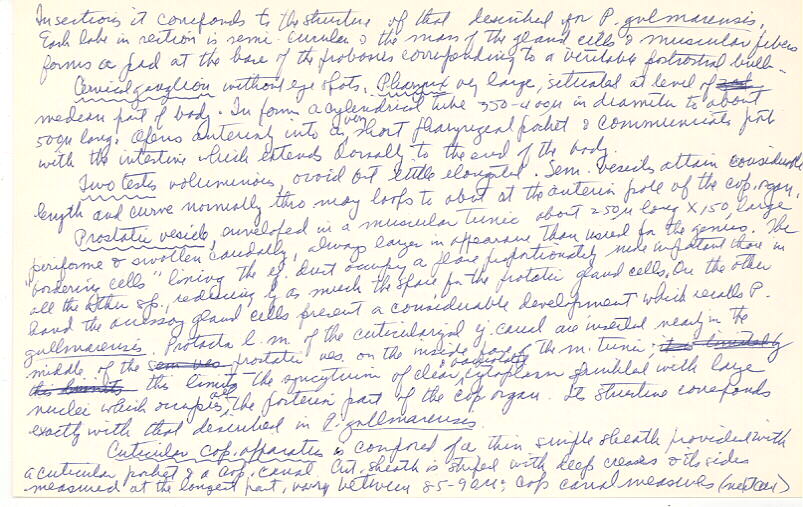 In sections it corresponds to the structure of that described for P. gullmarensis.
Each lobe in section is semi-circular & the mass of the gland cells & muscular fibers
forms a pad at the base of the proboscis corresponding to a veritable postrostral bulb-
Cervical ganglion without eye spots. Pharynx very large, situated at level of
median part of body. In form a cylindrical tube 350-400µ in diameter to about
500µ long. Opens anteriorly into a very short pharyngeal pocket & communicates post.
with the intestine which extends dorsally to the end of the body.
Two testes voluminous, ovoid but little elongated. Sem. vesicles attain considerable
length and curve normally thro many loops to abut at the anterior pole of the cop. organ.
Prostatic vesicle, enveloped in a muscular tunic about 250µ long X 150, large
piriforme & swollen caudally, always larger in appearance than usual for the genus. The
"bordering cells" lining the ej. duct occupy a place proportionately more important than in
all the other sp., reducing by as much the space for the prostatic gland cells. On the other
hand the accessory gland cells present a considerable development which recalls P.
gullmarensis. Protacta l. m. of the cuticularized ej. canal are inserted nearly in the
middle of the sem ves prostatic ves. on the inside face of the m. tunic;
this limits the syncytium of clear, vacuolate cytoplasm sprinkled with large
nuclei which occupies all the posterior part of the cop. organ. Its structure corresponds
exactly with that described in P. gullmarensis.
Cuticular cop. apparatus is composed of a thin simple sheath provided with
a cuticular pocket & a cop. canal. Cut. sheath is striped with deep creases & its sides
measured at the longest part, vary between 85-90µ; cop canal measures (next card)